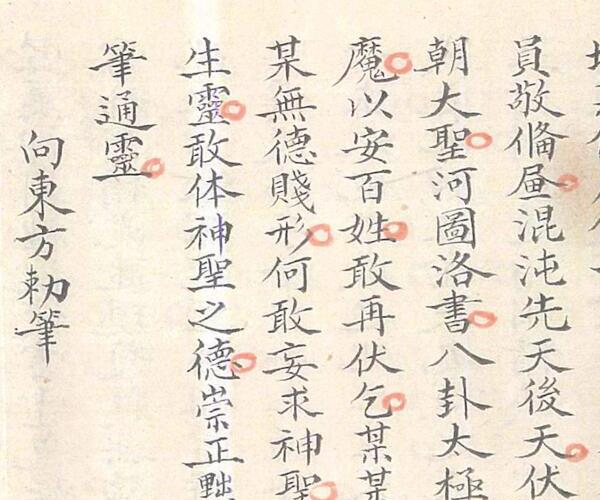 員敬俻㞐混沌先天後天伏
朝大聖河圖洛書八卦太極
魔以安百姓敢再伏乞某某
某無德賤形何敢妄求神聖
生靈敢体神聖之德崇正黜
筆通靈
向東方勅筆